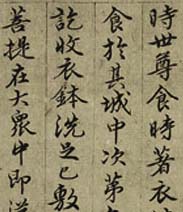 時世尊食時著衣
食於其城中次第
訖收衣鉢洗足已敷
菩提在大眾中即從